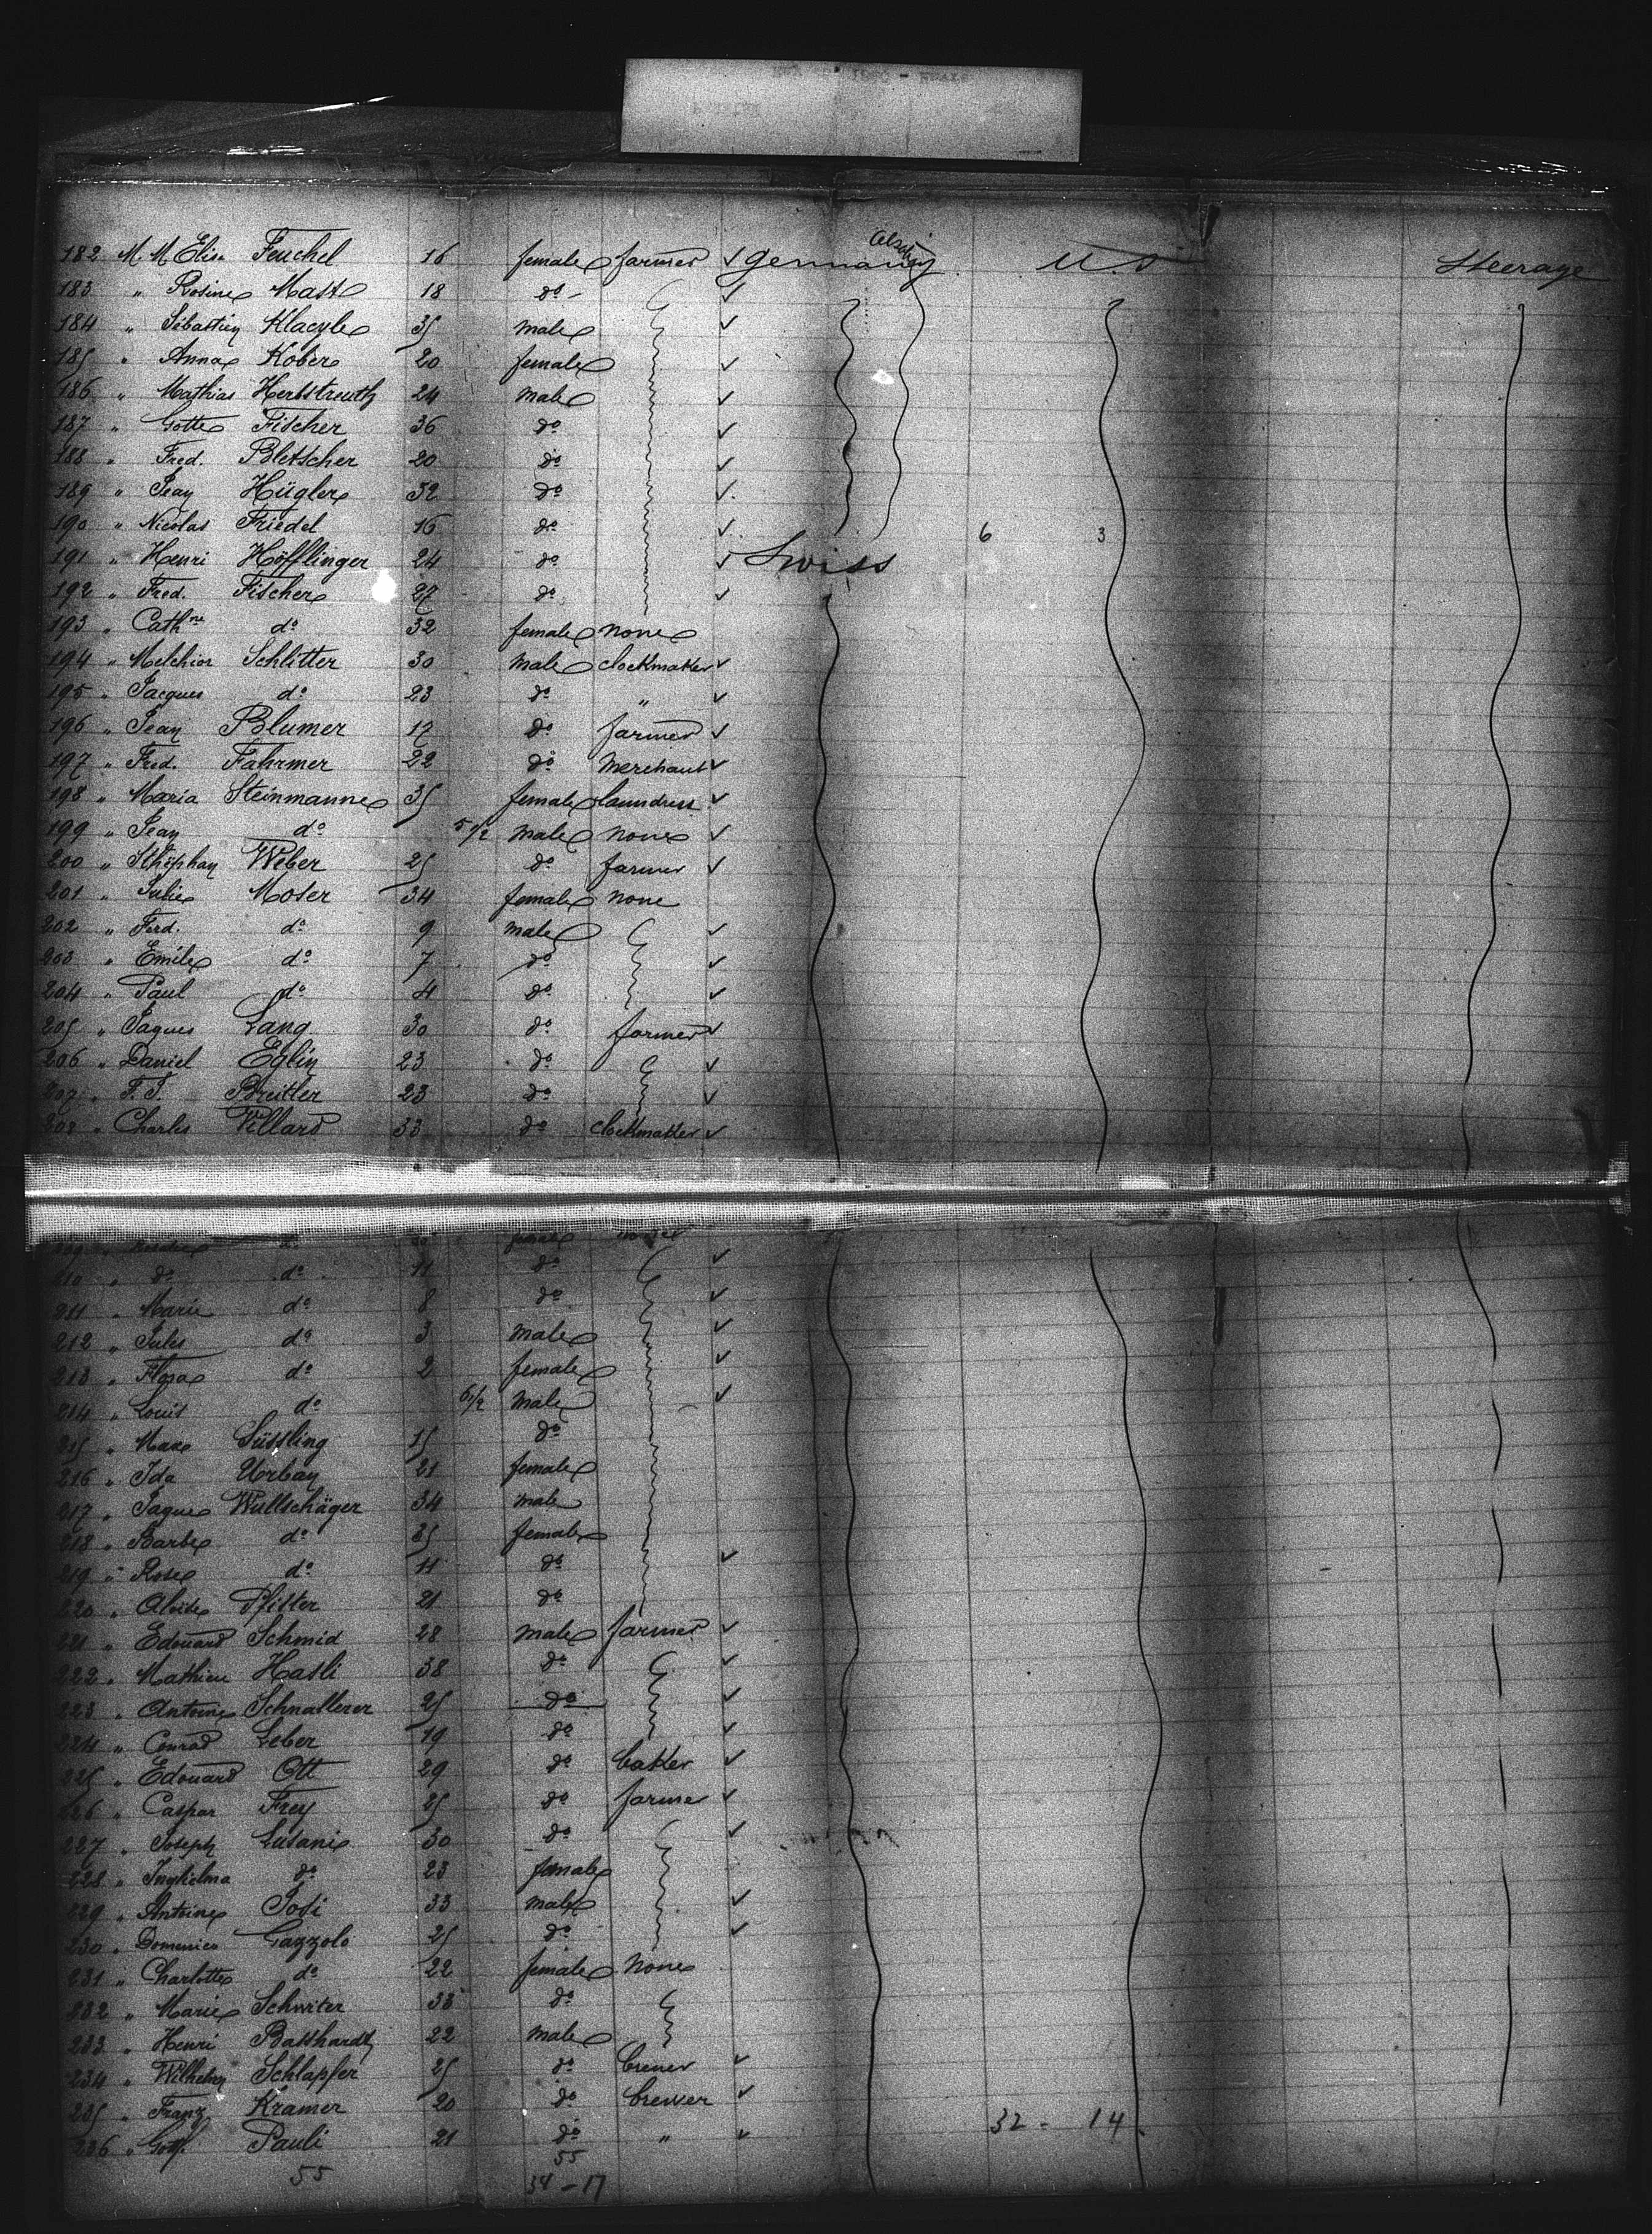 182 M. M. Elise Feuchel 16 female farmer ✓ Germany Alsacy U.S Steerage
183 " Rosine Mast 18 do - ✓
184 " Sébastien Klaeyle 35 male ✓
185 " Anna Kober 20 female ✓
186 " Mathias Herbstreuth 24 male ✓
187 " Gotte Fischer 36 do ✓
188 " Fred. Bletscher 20 do ✓
189 " Jean Hügler 32 do ✓
190 " Nicolas Friedel 16 do ✓ 6 3
191 " Henri Höfflinger 24 do ✓ Swiss
192 " Fred. Fischer 27 do ✓
193 " Cathne do 32 female none
194 " Melchior Schlitter 30 male clockmaker ✓
195 " Jacques do 23 do " ✓
196 " Jean Blumer 17 do farmer ✓
197 " Fred. Fahrmer 22 do merchant ✓
198 " Maria Steinmann 35 female laundress ✓
199 " Jean do 5/12 male none ✓
200 " Sthéphan Weber 25 do farmer ✓
201 " Julie Moser 34 female none
202 " Ferd. do 9 male ✓
203 " Emile do 7 do ✓
204 " Paul do 4 do ✓
205 " Jaques Lang 30 do farmer ✓
206 " Daniel Eglin 23 do ✓
207 " F. J. Breitler 23 do ✓
208 " Charles Villard 33 do clockmaker ✓
209 " do female none
210 " do do 11 do ✓
211 " Marie do 8 do ✓
212 " Jules do 3 male ✓
213 " Flora do 2 female ✓
214 " Louis do 6/12 male ✓
215 " Max Süssling 15 do
216 " Ida Urban 21 female
217 " Jaques Wullschäger 34 male
218 " Barbe do 35 female
219 " Rose do 11 do ✓
220 " Aloïse Pfister 21 do
221 " Edouard Schmid 28 male farmer ✓
222 " Mathieu Hasli 38 do ✓
223 " Antoine Schnallerer 25 do ✓
224 " Conrad Leber 19 do ✓
225 " Edouard Ott 29 do baker ✓
226 " Caspar Frey 25 do farmer ✓
227 " Joseph Lusani 30 do ✓
228 " do 23 female
229 " Antoine Josi 33 male ✓
230 " Domenico Gazzolo 25 do ✓
231 " Charlotte do 22 female none
232 " Marie Schwiter 33 do
233 " Henri Basshardt 22 male
234 " Wilhelm Schlapfer 25 do brewer ✓
235 " Franz Kramer 20 do brewer ✓
236 " Gottf. Pauli 21 do " ✓ 32 - 14
55 55
34 - 17